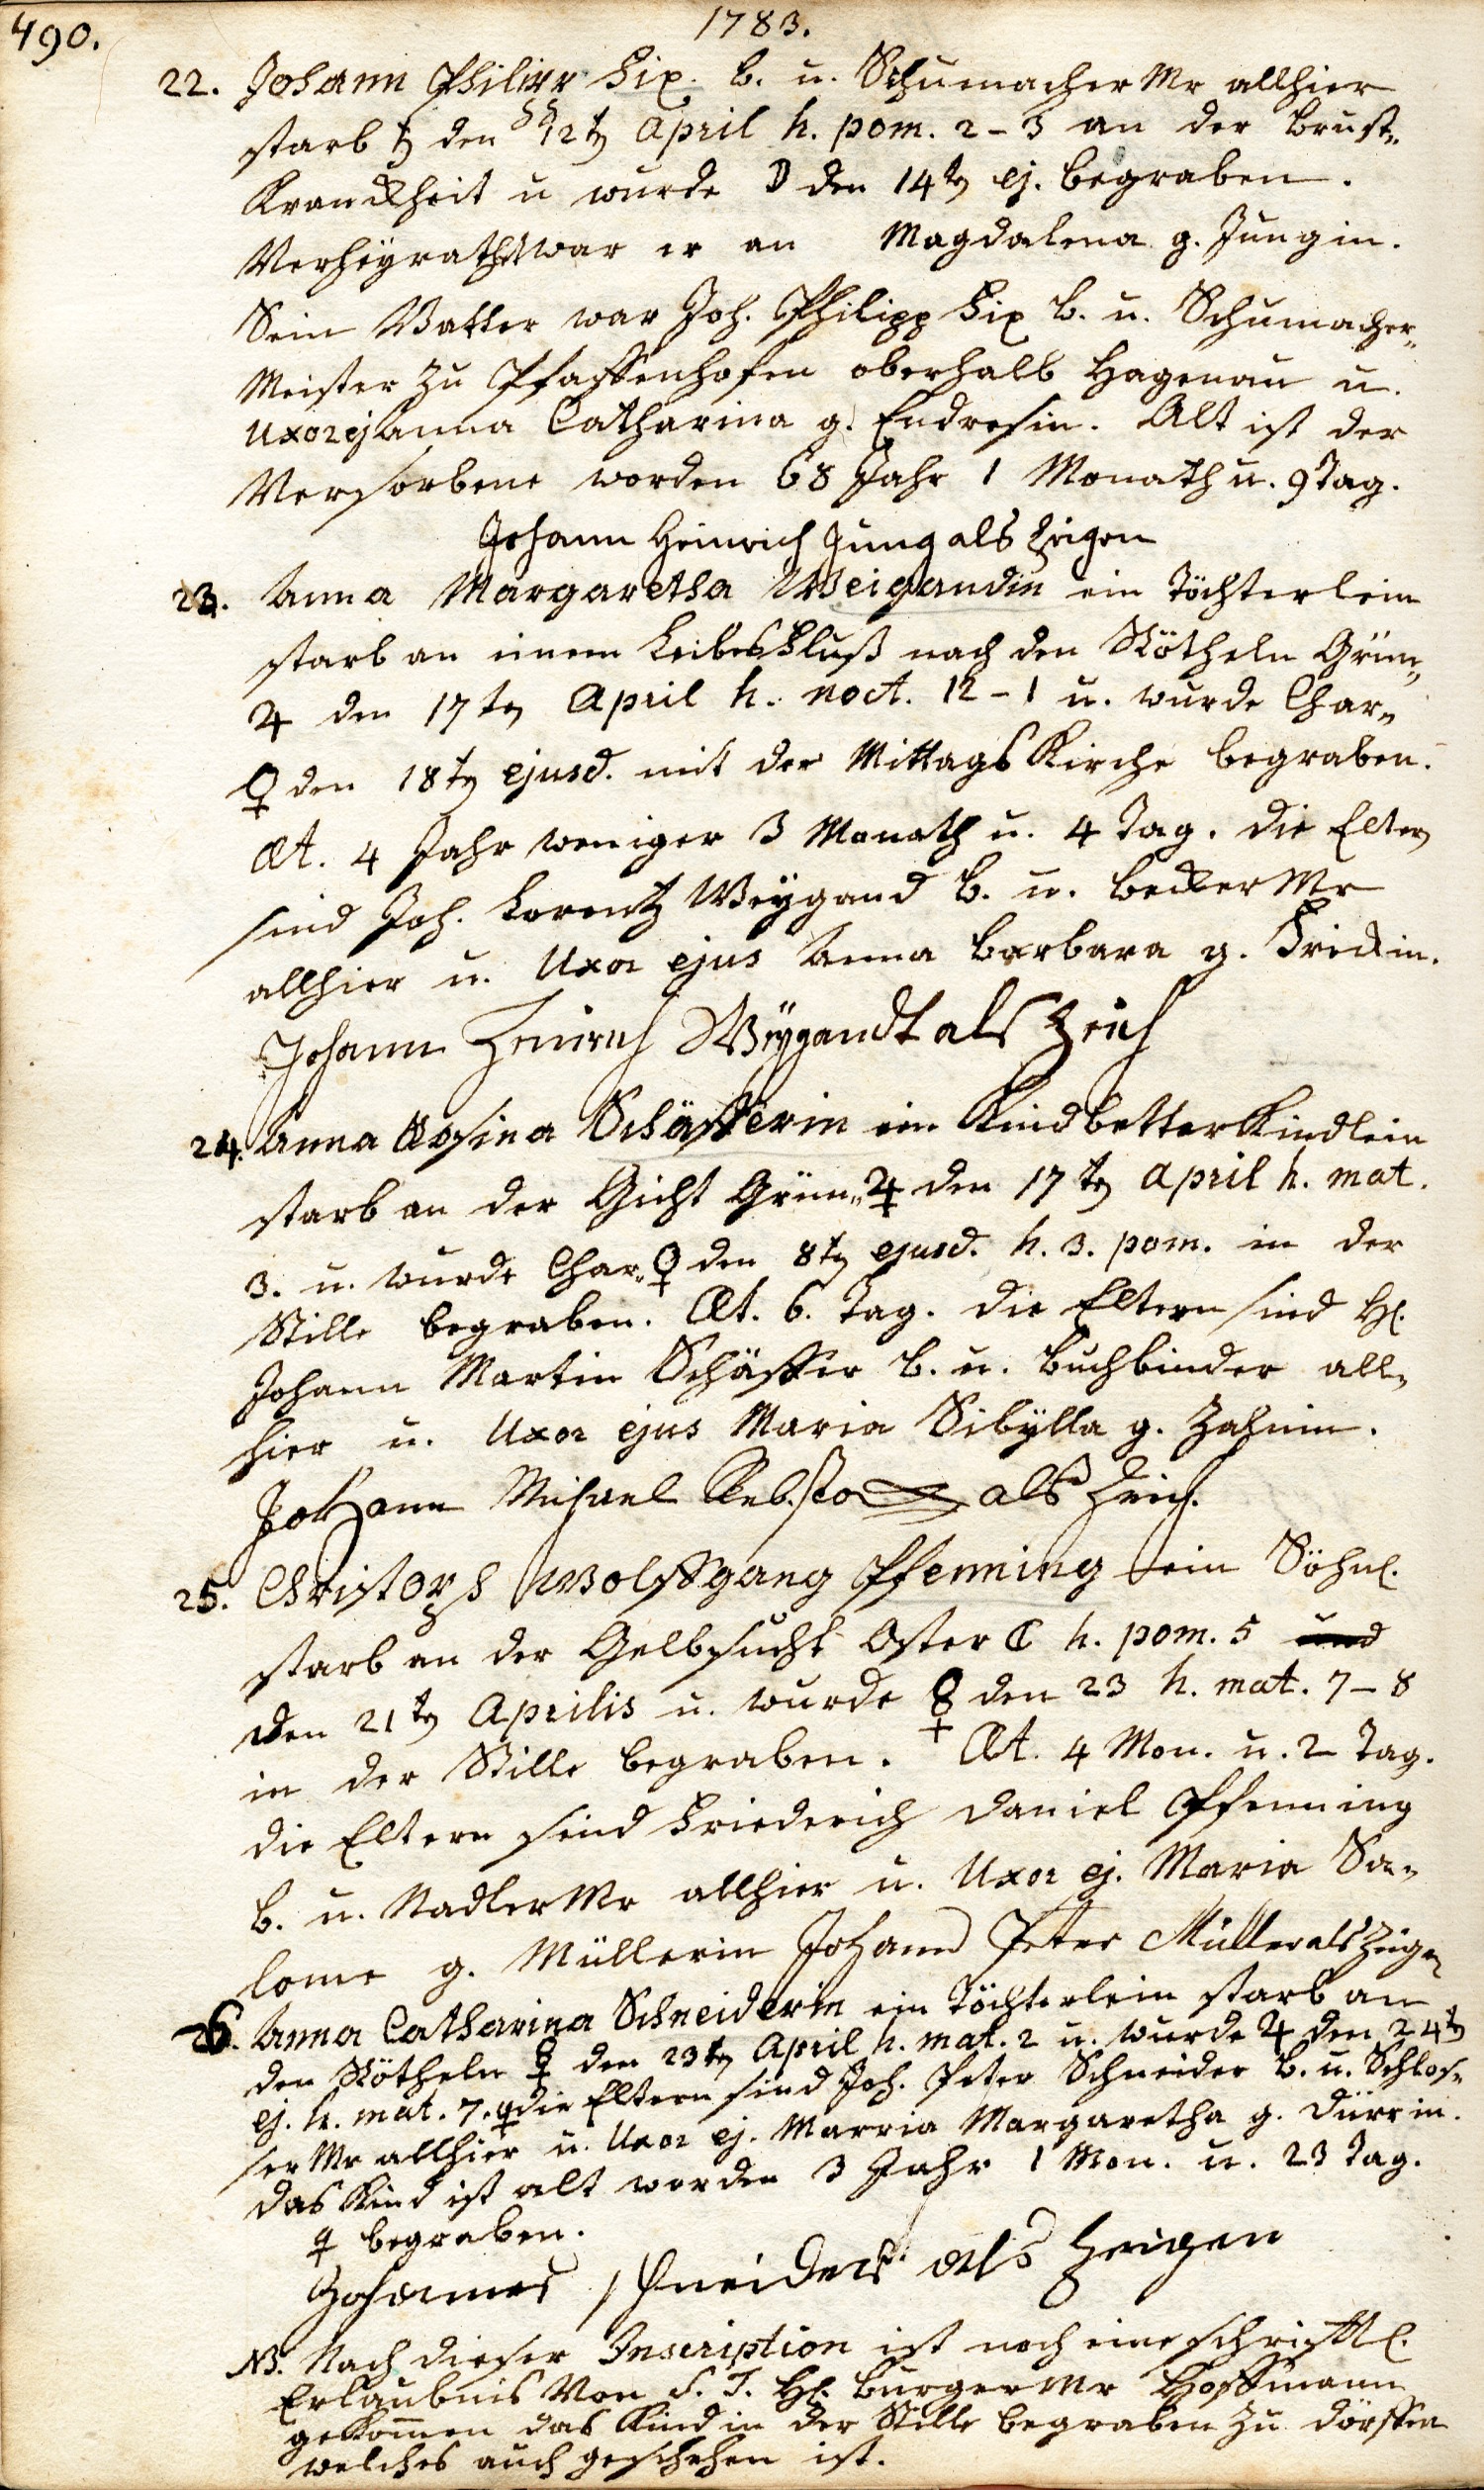 490.
1783.
22. Johann Philipp Fix. b. u. Schumacher Mr allhier
starb ♄ den 12t April h. pom. 2-3 an der Brust„
Kranckheit u wurde ☽ den 14t ej. begraben.
Verheyrath war er an Magdalena g. Jungin.
Sein Vatter war Joh. Philipp Fix b. u. Schumacher„
Meister zu Pfaffenhofen oberhalb Hagenau u.
Uxor ej Anna Catharina g. Endresin. Alt ist der
Verstorbene worden 68 Jahr 1 Monath u. 9 Tag.
Johann Heinrich Jung als Zeigen
23. Anna Margaretha Weigandin ein Töchterlein
starb an einem Leibes Fluß nach den Rötheln Grün„
♃ den 17t April h. noct. 12-1 u. wurde Char„
♀ den 18t ejusd. mit der Mittags Kirche begraben.
Æt. 4 Jahr weniger 3 Monath u. 4 Tag. Die Eltern
sind Joh. Lorentz Weygand b. u. Becker Mr
allhier u. Uxor ejus Anna Barbara g. Frickin.
Johann Heinrich Weygandt als Zeich
24. Anna Rosina Schäfferin ein Kindbetter Kindlein
starb an der Gicht Grün„ ♃ den 17t April h. mat.
3. u. wurde Char„ ♀ den 8t ejusd. h. 3. pom. in der
Stille begraben. Æt. 6. Tag. Die Eltern sind H.
Johann Martin Schäffer b. u. Buchbinder all„
hier u. Uxor ejus Maria Sibÿlla g. Zahnin.
Johann Michael Rebstock als Zeich.
25. Christoph Wolffgang Pfenning ein Söhnl.
starb an der Gelbsucht Oster ☾ h. pom. 5 und
den 21t Aprilis u. wurde ☿ den 23 h. mat. 7-8
in der Stille begraben. Æt. 4 Mon. u. 2 Tag.
die Eltern sind Friederich Daniel Pfenning
b. u. Nadler Mr allhier u. Uxor ej. Maria Sa„
lome g. Müllerin Johann Peter Müller als Zeigen
26. Anna Catharina Schneiderin ein Töchterlein starb an
den Rötheln ☿ den 23t April h. mat. 2 u. wurde ♃ den 24t
ej. h. mat. 7. ♀ die Eltern sind Joh. Peter Schneider b. u. Schlos„
ser Mr allhier u. Uxor ej. Marria Margaretha g. Dürrin.
das Kind ist alt worden 3 Jahr 1 Mon. u. 23 Tag.
♀ begraben.
Johannes schneider als Zeigen
NB. Nach dieser Inscription ist noch eine schrifftl.
Erlaubnis Von S. T. H. Burger Mr Hoffmann
gekommen das Kind in der Stille begraben zu dörffen
welches auch geschehen ist.